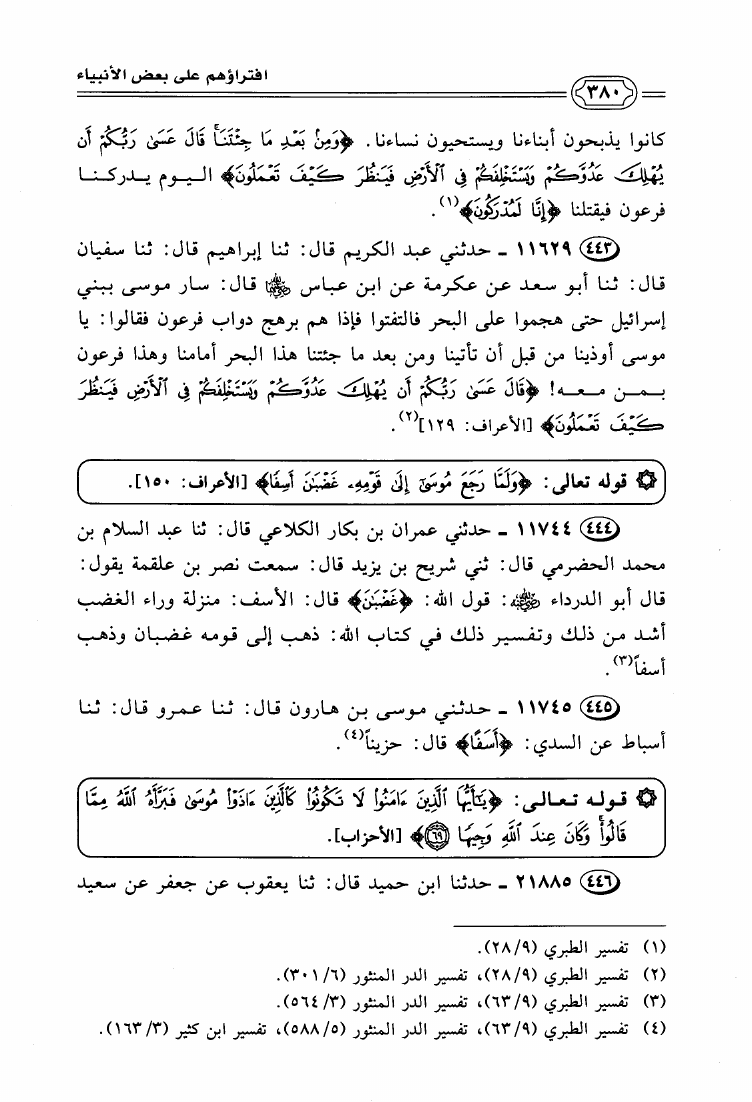 افتراؤهم على بعض الأنبياء
٣٨٠
كانوا يذبحون أبناءنا ويستحيون نساءنا. ﴿وَمِنۢ بَعْدِ مَا جِئْتَنَاۚ قَالَ عَسَىٰ رَبُّكُمْ أَن
يُهْلِكَ عَدُوَّكُمْ وَيَسْتَخْلِفَكُمْ فِي ٱلْأَرْضِ فَيَنظُرَ كَيْفَ تَعْمَلُونَ﴾ اليوم يدركنا
فرعون فيقتلنا ﴿إِنَّا لَمُدْرَكُونَ﴾(١).
٤٤٣ ١١٦٢٩ ـ حدثني عبد الكريم قال: ثنا إبراهيم قال: ثنا سفيان
قال: ثنا أبو سعد عن عكرمة عن ابن عباس ﷺ قال: سار موسى ببني
إسرائيل حتى هجموا على البحر فالتفتوا فإذا هم برهج دواب فرعون فقالوا: يا
موسى أوذينا من قبل أن تأتينا ومن بعد ما جئتنا هذا البحر أمامنا وهذا فرعون
بمن معه! ﴿قَالَ عَسَىٰ رَبُّكُمْ أَن يُهْلِكَ عَدُوَّكُمْ وَيَسْتَخْلِفَكُمْ فِي ٱلْأَرْضِ فَيَنظُرَ
كَيْفَ تَعْمَلُونَ﴾ [الأعراف: ١٢٩](٢).
۞ قوله تعالى: ﴿وَلَمَّا رَجَعَ مُوسَىٰٓ إِلَىٰ قَوْمِهِۦ غَضْبَٰنَ أَسِفًا﴾ [الأعراف: ١٥٠].
٤٤٤ ١١٧٤٤ ـ حدثني عمران بن بكار الكلاعي قال: ثنا عبد السلام بن
محمد الحضرمي قال: ثني شريح بن يزيد قال: سمعت نصر بن علقمة يقول:
قال أبو الدرداء ﷺ: قول الله: ﴿غَضْبَٰنَ﴾ قال: الأسف: منزلة وراء الغضب
أشد من ذلك وتفسير ذلك في كتاب الله: ذهب إلى قومه غضبان وذهب
أسفاً(٣).
٤٤٥ ١١٧٤٥ ـ حدثني موسى بن هارون قال: ثنا عمرو قال: ثنا
أسباط عن السدي: ﴿أَسَفًا﴾ قال: حزيناً(٤).
۞ قوله تعالى: ﴿يَٰٓأَيُّهَا ٱلَّذِينَ ءَامَنُوا۟ لَا تَكُونُوا۟ كَٱلَّذِينَ ءَاذَوْا۟ مُوسَىٰ فَبَرَّأَهُ ٱللَّهُ مِمَّا
قَالُوا۟ۚ وَكَانَ عِندَ ٱللَّهِ وَجِيهًا ٦٩﴾ [الأحزاب].
٤٤٦ ٢١٨٨٥ ـ حدثنا ابن حميد قال: ثنا يعقوب عن جعفر عن سعيد
(١) تفسير الطبري (٢٨/٩).
(٢) تفسير الطبري (٢٨/٩)، تفسير الدر المنثور (٣٠١/٦).
(٣) تفسير الطبري (٦٣/٩)، تفسير الدر المنثور (٥٦٤/٣).
(٤) تفسير الطبري (٦٣/٩)، تفسير الدر المنثور (٥٨٨/٥)، تفسير ابن كثير (١٦٣/٣).